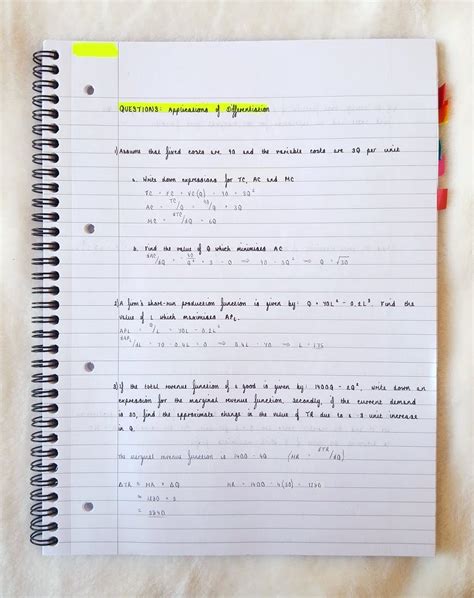 QUESTIONS: Applications of Differentiation
1) Assume that fixed costs are 90 and the variable costs are 3Q per unit
a. Write down expressions for TC, AC and MC
TC = FC + VC(Q) = 90 + 3Q²
AC = TC/Q = 90/Q + 3Q
MC = dTC/dQ = 6Q
b. Find the value of Q which minimises AC
2) A firm's short-run production function is given by: Q = 70L² - 0.2L³. Find the
value of L which maximises APL.
APL = Q/L = 70L - 0.2L²
dAPL/dL = 70 - 0.4L = 0 ⇒ 0.4L = 70 ⇒ L = 175
3) If the total revenue function of a good is given by: 1400Q - 2Q², write down an
expression for the marginal revenue function. Secondly, if the current demand
is 30, find the approximate change in the value of TR due to a 3 unit increase
in Q.
the marginal revenue function is 1400 - 4Q (MR = dTR/dQ)
ΔTR ≈ MR × ΔQ MR = 1400 - 4(30) = 1280
= 1280 × 3
= 3840